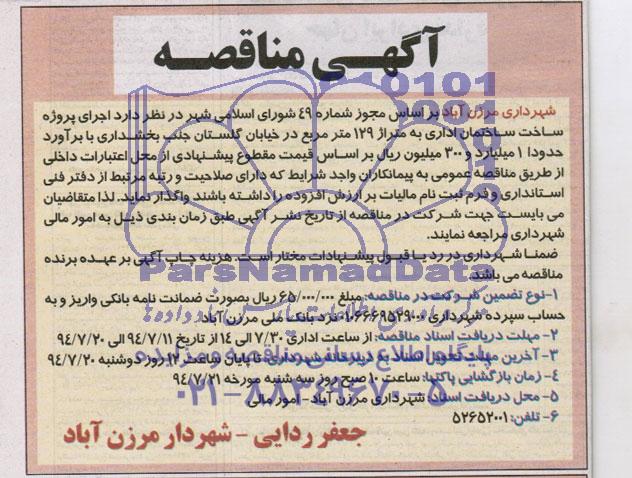 آگهی مناقصه
شهرداری مرزن آباد بر اساس مجوز شماره ۴۹ شورای اسلامی شهر در نظر دارد اجرای پروژه
ساخت ساختمان اداری به متراژ ۱۲۹ متر مربع در خیابان گلستان جنب بخشداری با برآورد
حدودا ۱ میلیارد و ۳۰۰ میلیون ریال بر اساس قیمت مقطوع پیشنهادی از محل اعتبارات داخلی
از طریق مناقصه عمومی به پیمانکاران واجد شرایط که دارای صلاحیت و رتبه مرتبط از دفتر فنی
استانداری و فرم ثبت نام مالیات بر ارزش افزوده را داشته باشند واگذار نماید. لذا متقاضیان
می بایست جهت شرکت در مناقصه از تاریخ نشر آگهی طبق زمان بندی ذیل به امور مالی
شهرداری مراجعه نمایند.
ضمنا شهرداری در رد یا قبول پیشنهادات مختار است. هزینه چاپ آگهی بر عهده برنده
مناقصه می باشد.
۱-نوع تضمین شرکت در مناقصه: مبلغ ۶۵/۰۰۰/۰۰۰ ریال بصورت ضمانت نامه بانکی واریز و به
حساب سپرده شهرداری ۰۱۰۶۶۶۹۵۲۹۰۰۰ نزد بانک ملی مرزن آباد
۲- مهلت دریافت اسناد مناقصه: از ساعت اداری ۷/۳۰ الی ۱۴ از تاریخ ۹۴/۷/۱۱ تا ۹۴/۷/۲۰
۳- آخرین مهلت تحویل اسناد به دبیرخانه شهرداری: تا پایان ساعت ۱۲ روز دوشنبه ۹۴/۷/۲۰
۴- زمان بازگشایی پاکتها: ساعت ۱۰ صبح روز سه شنبه مورخه ۹۴/۷/۲۱
۵- محل دریافت اسناد: شهرداری مرزن آباد- امور مالی
۶- تلفن: ۵۲۶۵۲۰۰۱
جعفر ردایی - شهردار مرزن آباد
ParsNamadData
۰۲۱-۸۸۳۴۹۶۷۰-۵